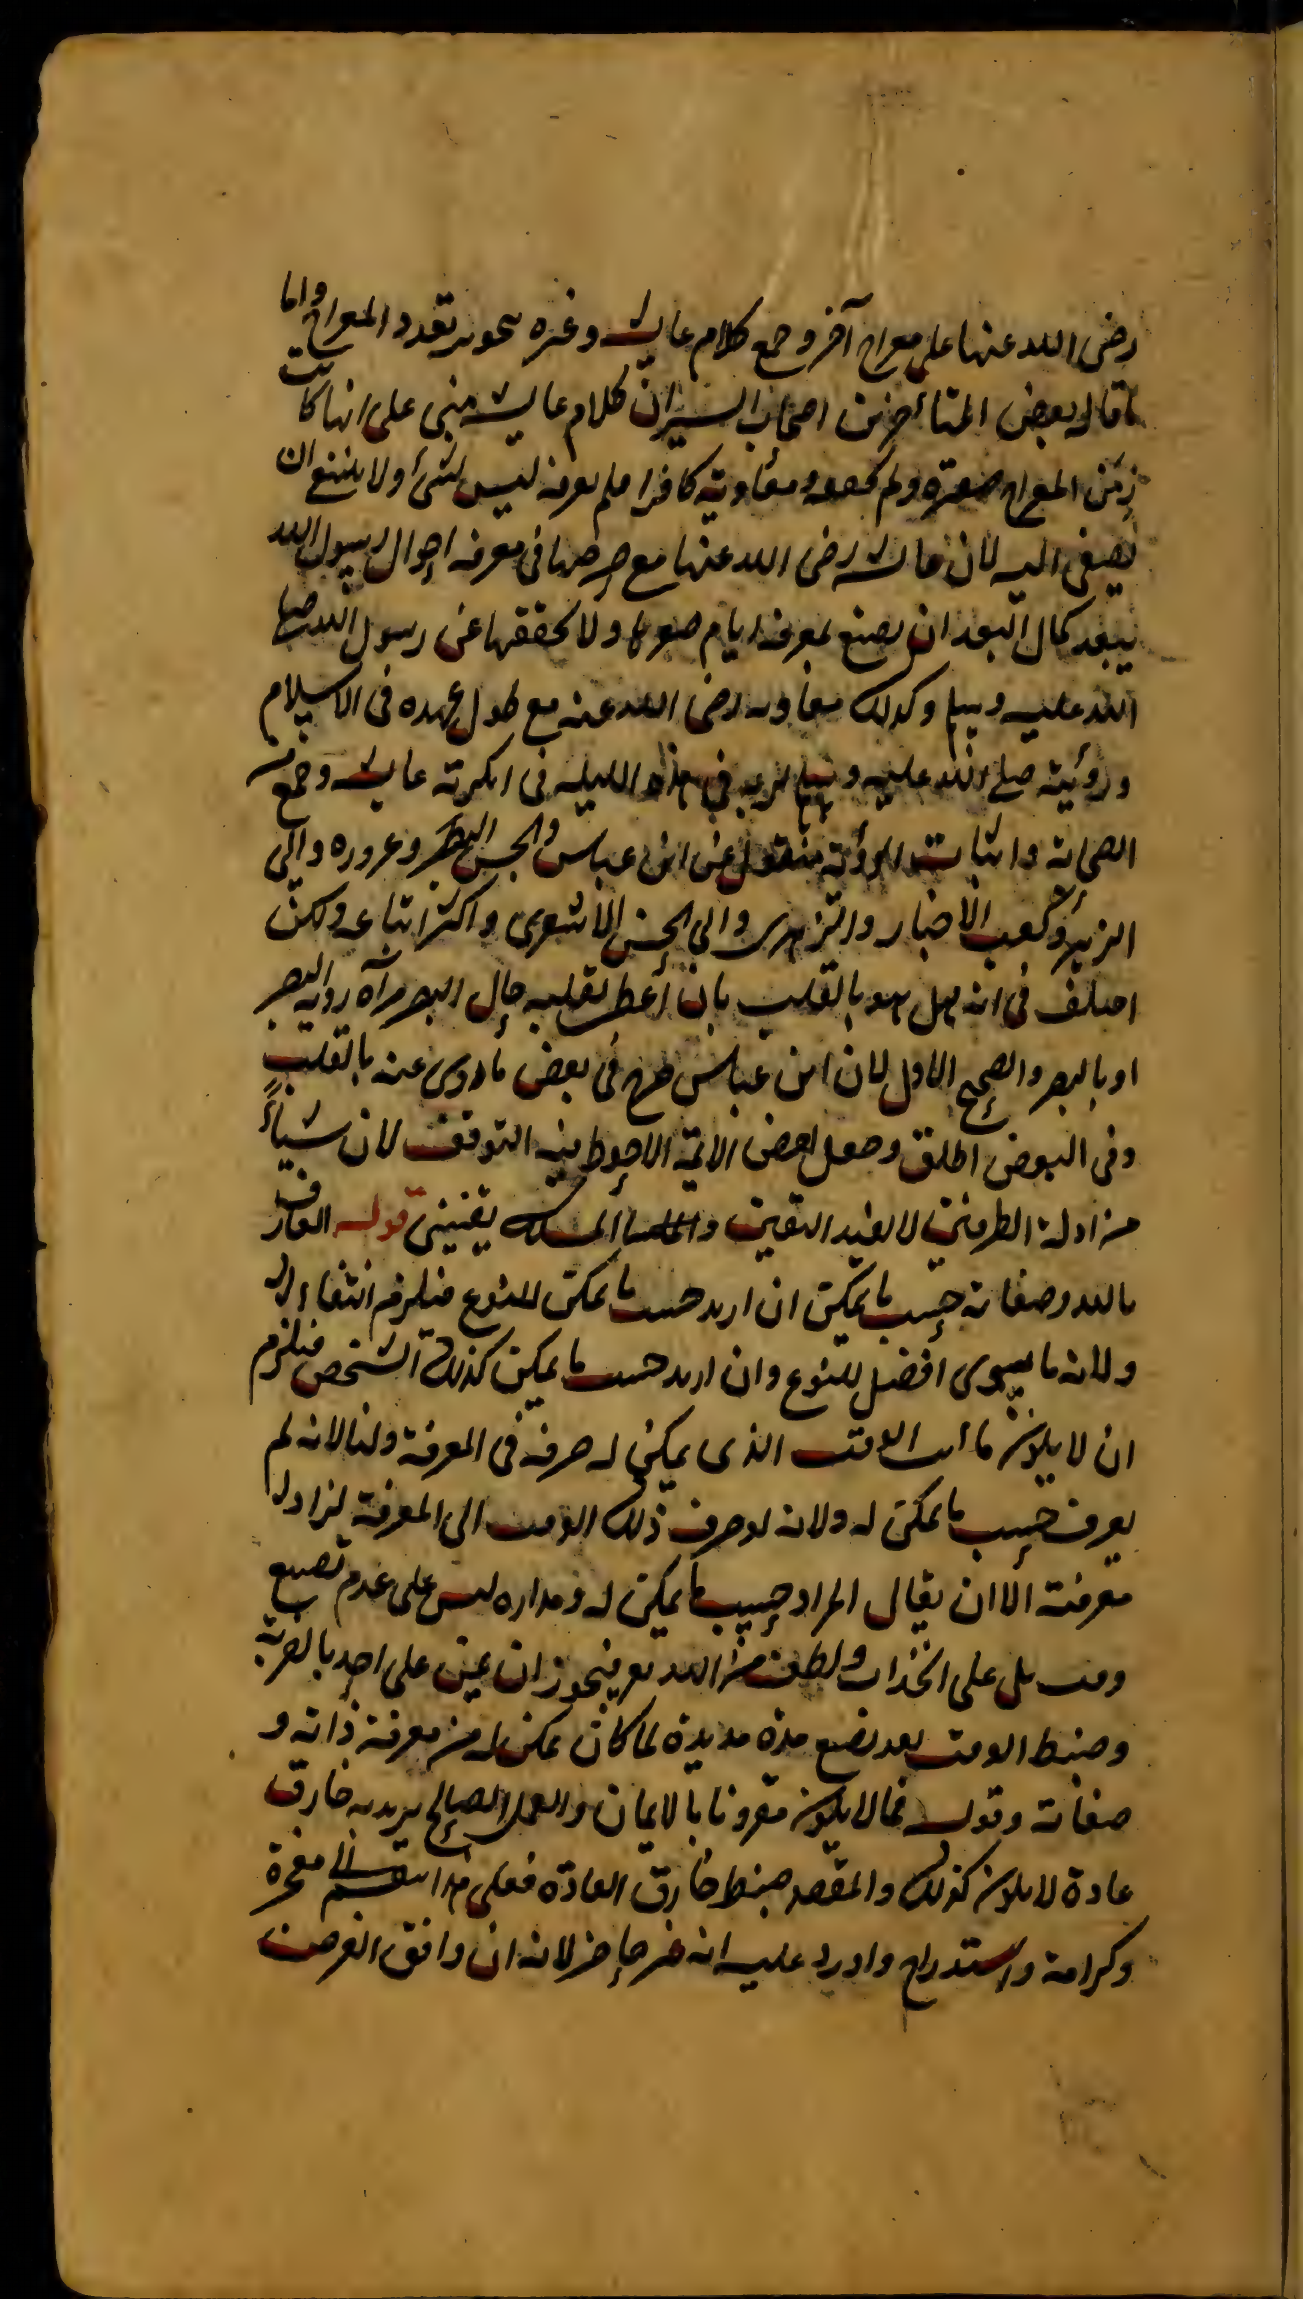 رضى الله عنها على معراج آخر وجمع كلام عايشه وغيره بتجويز تعدد المعراج واما
ما قاله بعض المتأخرين من اصحاب السير ان كلام عايشه مبنى على انها كانت
زمن المعراج صغيرة ولم ومعاوية كافرا فلم يعرفه ليس بشئ ولا ينبغى ان
يصغى اليه لان عايشه رضى الله عنها مع حرصها فى معرفة احوال رسول الله
يبعد كمال البعد ان يصنع بمعرفة ايام صغرها ولا تحققها عن رسول الله صلى
الله عليه وسلم وكذلك معاويه رضى الله عنه مع طول عهده فى الاسلام
ورؤيته صلى الله عليه وسلم لربه فى هذه الليله فى انكرته عايشه وجمع من
الصحابة واثبات الرؤية منقول عن ابن عباس والحسن البصرى وعروره وابى
الزبير وكعب الاخبار والزهرى وابى الحسن الاشعرى واكثر اتباعه ولكن
اختلف فى انه هل هو بالقلب بان أعطى لقلبه حال البصر فرآه رؤية البصر
او بالبصر والصحيح الاول لان ابن عباس صرح فى بعض ما روى عنه بالقلب
وفى البعض اطلق وجعل بعض الائمة الاحوط فيه التوقف لان شيأ
من ادلة الطرفين لا يفيد اليقين يقينى قوله العارف
بالله وصفاته حسب ما يمكن ان اريد حسب ما يمكن للنوع فيلزم انتفاء
ولانه ما يسوى افضل للنوع وان اريد حسب ما يمكن كذلك الشخص فيلزم
ان لا يكون الوقت الذى يمكن له صرفه فى المعرفة وليا لانه لم
يعرف حسب ما يمكن له ولانه لو صرف ذلك الوقت الى المعرفة لزاد له
معرفته الا ان يقال المراد حسب ما يمكن له ومداره ليس على عدم تضييع
وقت بل على انجذاب ولطف من الله تعالى فيجوز ان يمن على احد بالقربة
وضبط الوقت بعد تضييع مدة مديدة لما كان يمكن له من معرفة ذاته و
صفاته وقوله فما لا يكون مقرونا بالايمان والعمل الصالح يريد به خارق
عادة لا يكون كذلك والمقصد ضبط خارق العادة فعلى هذا انقسم الى معجزة
وكرامة واستدراج واورد عليه انه غير حاصر لانه ان وافق الغرض